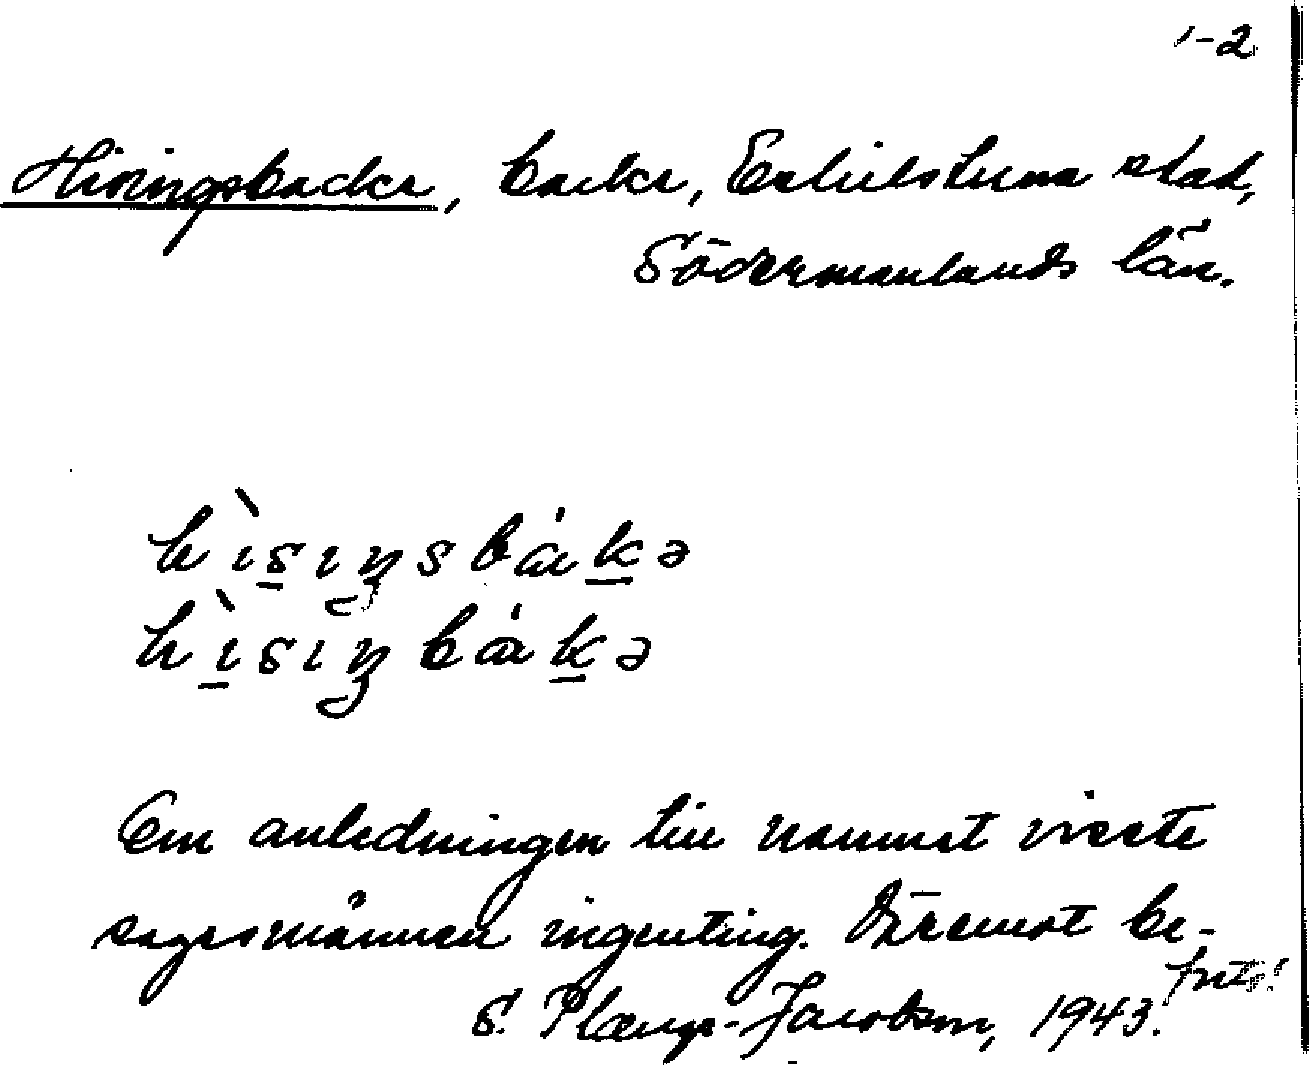 1-2
Hisingsbacke, backe, Eskilstuna stad,
Södermanlands län.
hìsıŋsbákə
hìsıŋbákə
Om anledningen till namnet visste
sagesmännen ingenting. Däremot be-
forts!
S. Plenge-Jacobson, 1943.